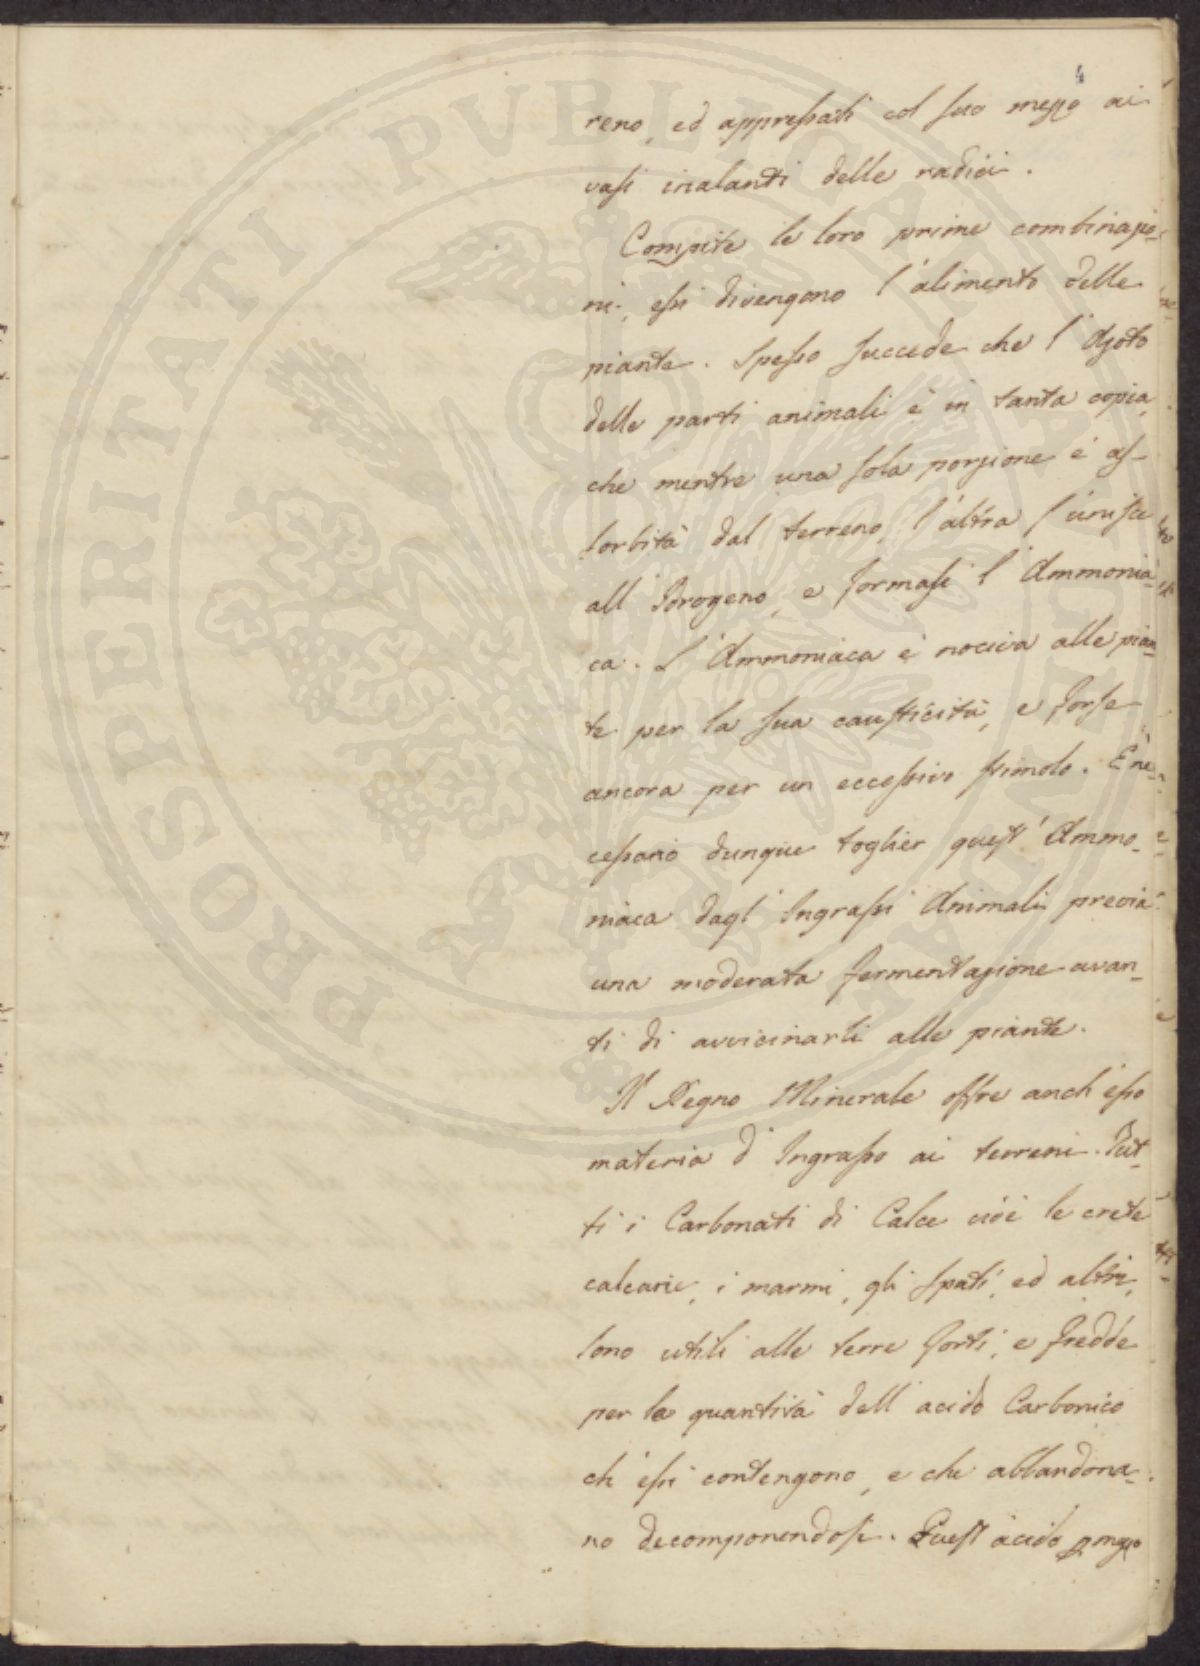 4
reno, ed appressati col suo mezzo ai
vasi inalanti delle radici.
Compite le loro prime combinazio-
ni, essi divengono l'alimento delle
piante. Spesso succede che l'Azoto
delle parti animali è in tanta copia,
che mentre una sola porzione è as-
sorbita dal terreno, l'altra s'unisce
all'Idrogeno, e formasi l'Ammonia-
ca. L'Ammoniaca è nociva alle pian-
te per la sua causticità, e forse
ancora per un eccessivo stimolo. È ne-
cessario dunque toglier quest'Ammo-
niaca dagl'Ingrassi Animali previa
una moderata fermentazione avan-
ti di avvicinarli alle piante.
Il Regno Minerale offre anch'esso
materia d'Ingrasso ai terreni. Tut-
ti i Carbonati di Calce cioè le crete
calcarie, i marmi, gli spati, ed altri,
sono utili alle terre forti, e fredde
per la quantità dell'acido Carbonico
ch'essi contengono, e che abbandona-
no decomponendosi. Quest'acido
PROSPERITATI PUBLICAE AUGENDAE